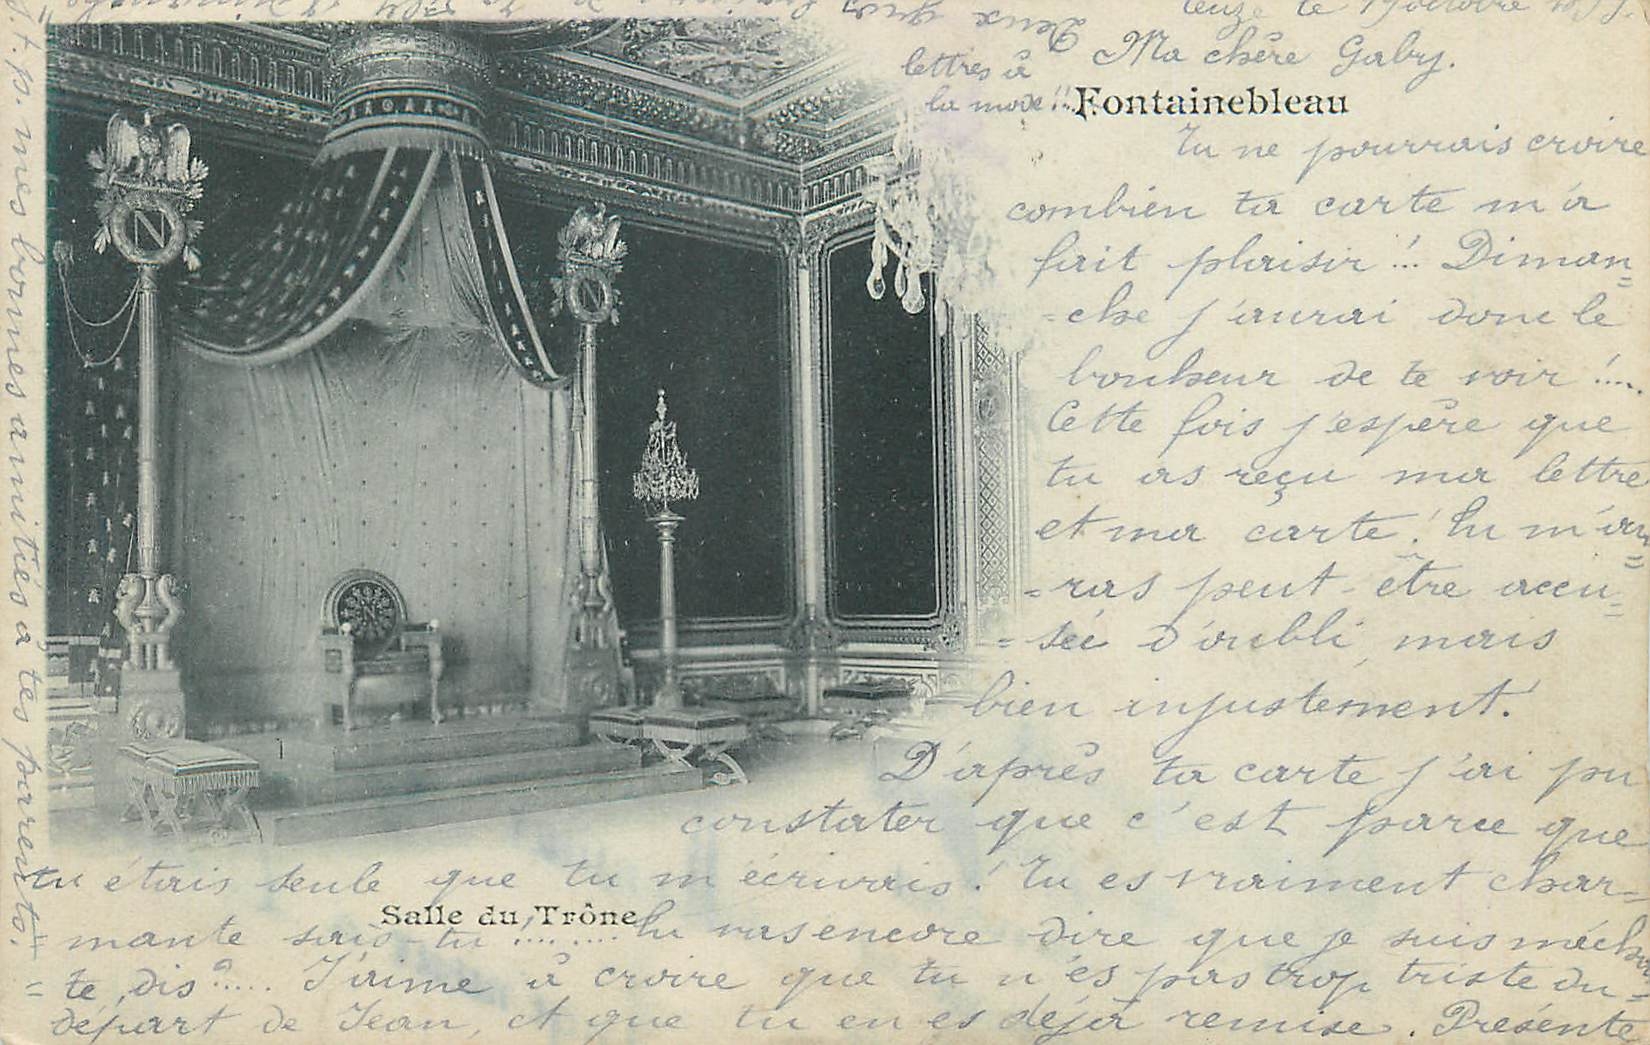 Leuze le 19 octobre
Ma chère Gabry.
Fontainebleau
Tu ne pourrais croire
combien ta carte m'a
fait plaisir!! Diman=
=che j'aurai donc le
bonheur de te voir!....
Cette fois j'espère que
tu as reçu ma lettre
et ma carte! Tu m'au=
=ras peut-être accu=
=sée d'oubli, mais
bien injustement!
D'après ta carte j'ai pu
constater que c'est parce que
tu étais seule que tu m'écrivais! Tu es vraiment char=
Salle du Trône
mante sais-tu ........ Tu vas encore dire que je suis méchan
=te, dis?..... J'aime à croire que tu n'es pas trop triste du
départ de Jean, et que tu en es déjà remise. Présente
s. t. p. mes bonnes amitiés à tes parents.
Deux
lettres à
la mode!!
N
N